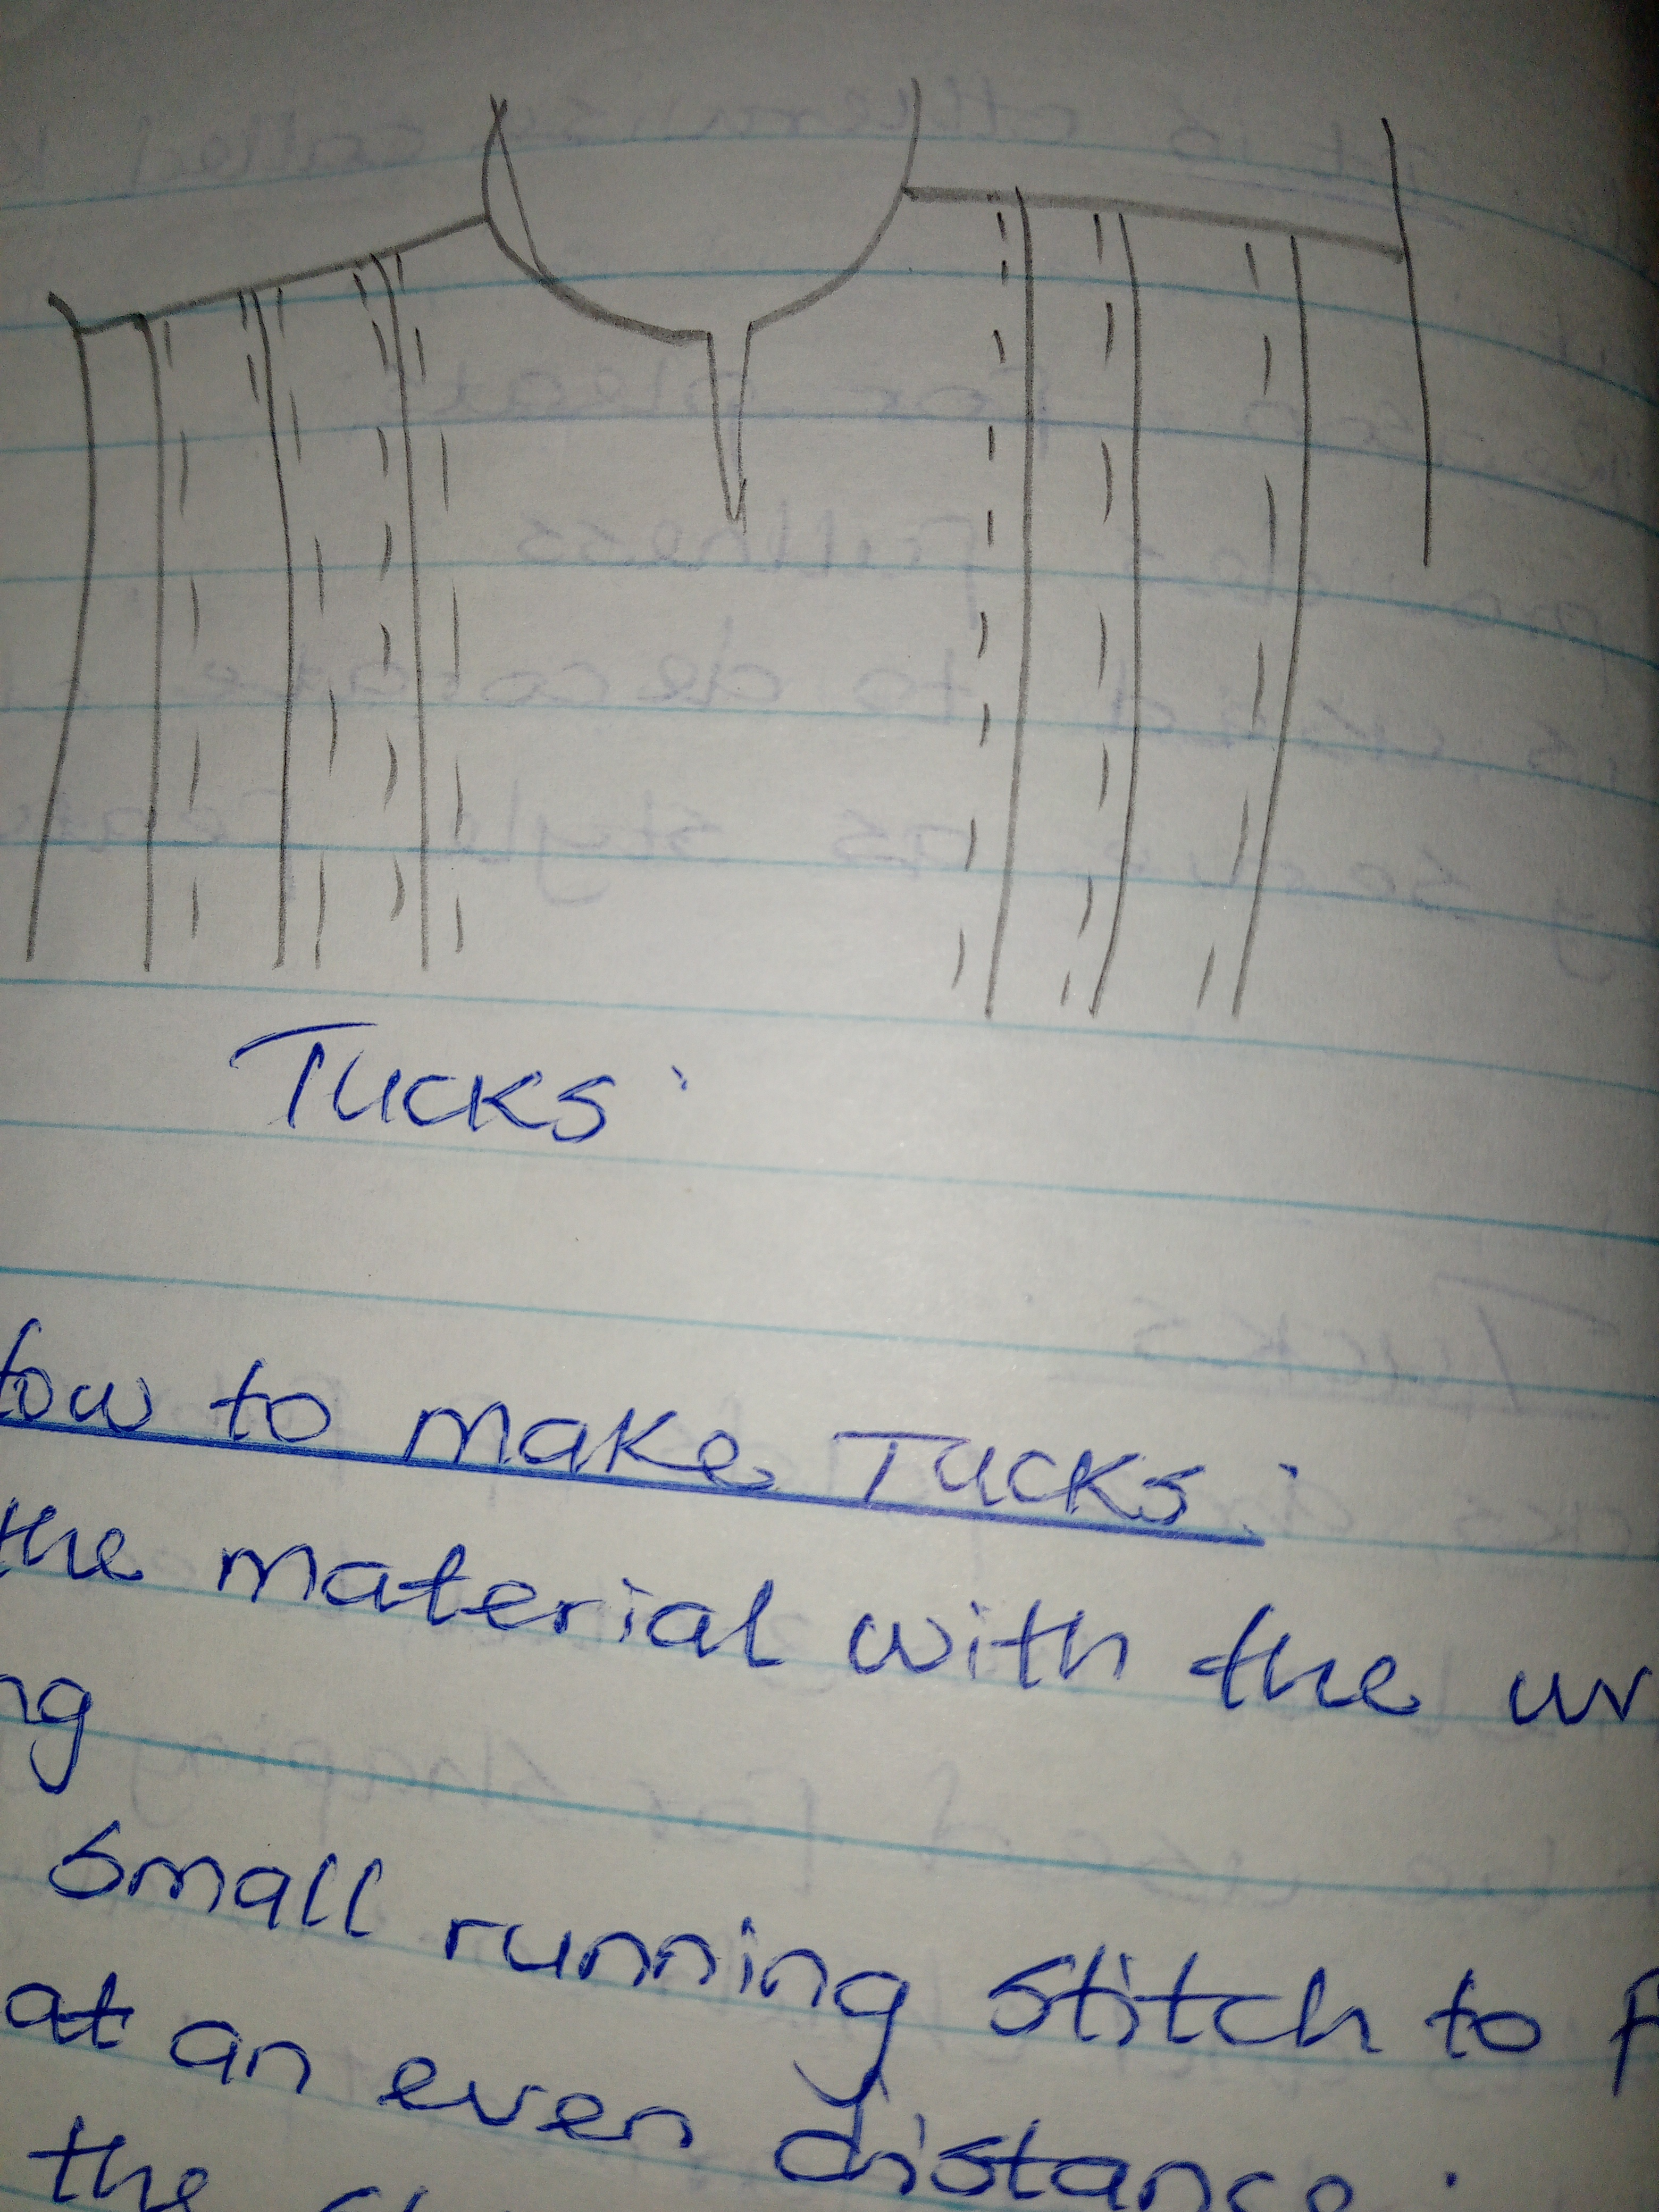 Tucks.
How to make Tucks.
the material with the wr
ng
small running stitch to f
at an even distance.
the